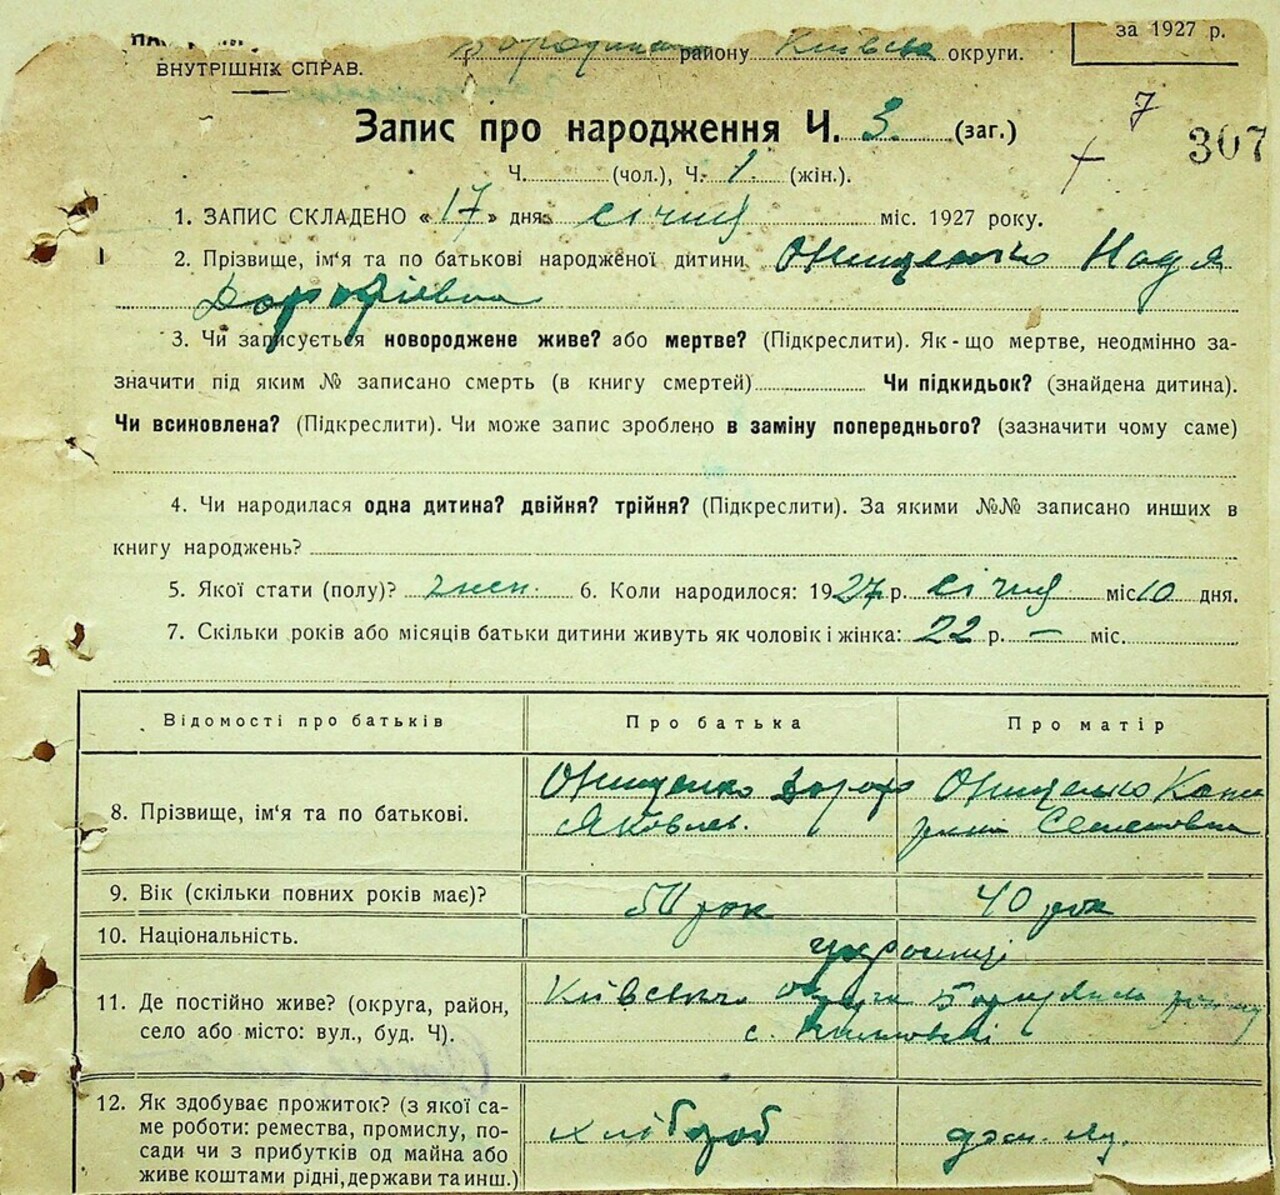 району Київськ округи. за 1927 р.
ВНУТРІШНІХ СПРАВ.
7
Запис про народження Ч. 3. (заг.) 307
Ч. (чол.), Ч. 1. (жін.).
1. ЗАПИС СКЛАДЕНО «17» дня січня міс. 1927 року.
2. Прізвище, ім'я та по батькові народженої дитини Онищенко Надя
Дорофіевна
3. Чи записується новороджене живе? або мертве? (Підкреслити). Як-що мертве, неодмінно за-
значити під яким № записано смерть (в книгу смертей) Чи підкидьок? (знайдена дитина).
Чи всиновлена? (Підкреслити). Чи може запис зроблено в заміну попереднього? (зазначити чому саме)
4. Чи народилася одна дитина? двійня? трійня? (Підкреслити). За якими №№ записано инших в
книгу народжень?
5. Якої стати (полу)? жен. 6. Коли народилося: 1927 р. січня міс 10 дня.
7. Скільки років або місяців батьки дитини живуть як чоловік і жінка: 22 р. — міс.
Відомості про батьків Про батька Про матір
8. Прізвище, ім'я та по батькові. Онищенко Дороф Яковлев. Онищенко Кате
рина Семеновна
9. Вік (скільки повних років має)? 50 рок 40 рок
10. Національність. українці
11. Де постійно живе? (округа, район, Київськ. округи району
село або місто: вул., буд. Ч). с.
12. Як здобуває прожиток? (з якої са-
ме роботи: ремества, промислу, по- хлібороб
сади чи з прибутків од майна або
живе коштами рідні, держави та инш.)